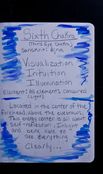 Sixth Chakra
(Third Eye Chakra)
Sanskrit: Ajna
Visualization
Intuition
Illumination
Element: All elements combined
Located in the center of the
forehead above the eyebrows.
This energy center is all about
self-reflection, intuition,
and being able to
see Everything
Clearly...